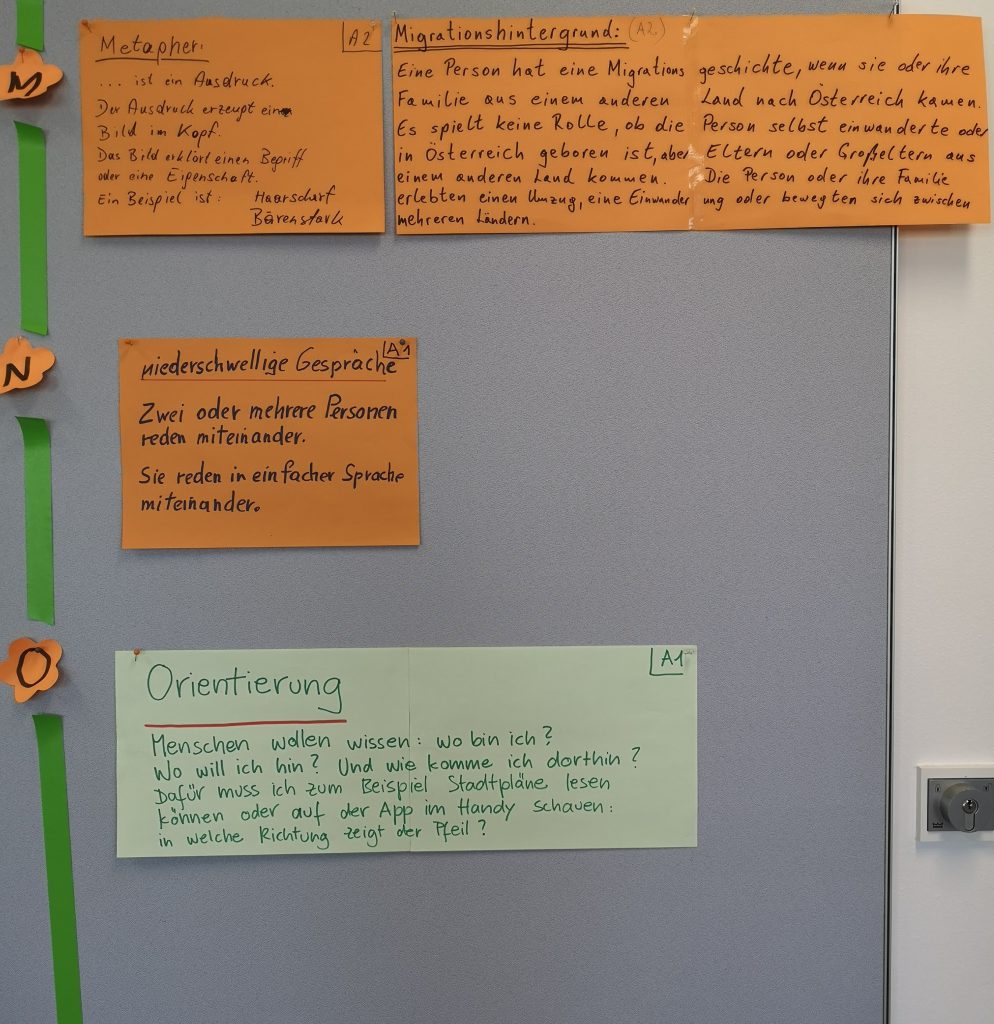 M
Metapher:
A2
... ist ein Ausdruck.
Der Ausdruck erzeupt ein
Bild im Kopf.
Das Bild erklört einen Begriff
oder eine Eigenschaft.
Ein Beispiel ist: Haarscharf
Bärenstark
Migrationshintergrund: (A2)
Eine Person hat eine Migrations geschichte, wenn sie oder ihre
Familie aus einem anderen Land nach Österreich kamen.
Es spielt keine Rolle, ob die Person selbst einwanderte oder
in Österreich geboren ist, aber Eltern oder Großeltern aus
einem anderen Land kommen. Die Person oder ihre Familie
erlebten einen Umzug, eine Einwander ung oder bewegten sich zwischen
mehreren Ländern.
N
A1
niederschwellige Gespräche
Zwei oder mehrere Personen
reden miteinander.
Sie reden in einfacher Sprache
miteinander.
O
Orientierung
A1
Menschen wollen wissen: wo bin ich?
Wo will ich hin? Und wie komme ich dorthin?
Dafür muss ich zum Beispiel Stadtpläne lesen
können oder auf der App im Handy schauen:
in welche Richtung zeigt der Pfeil?